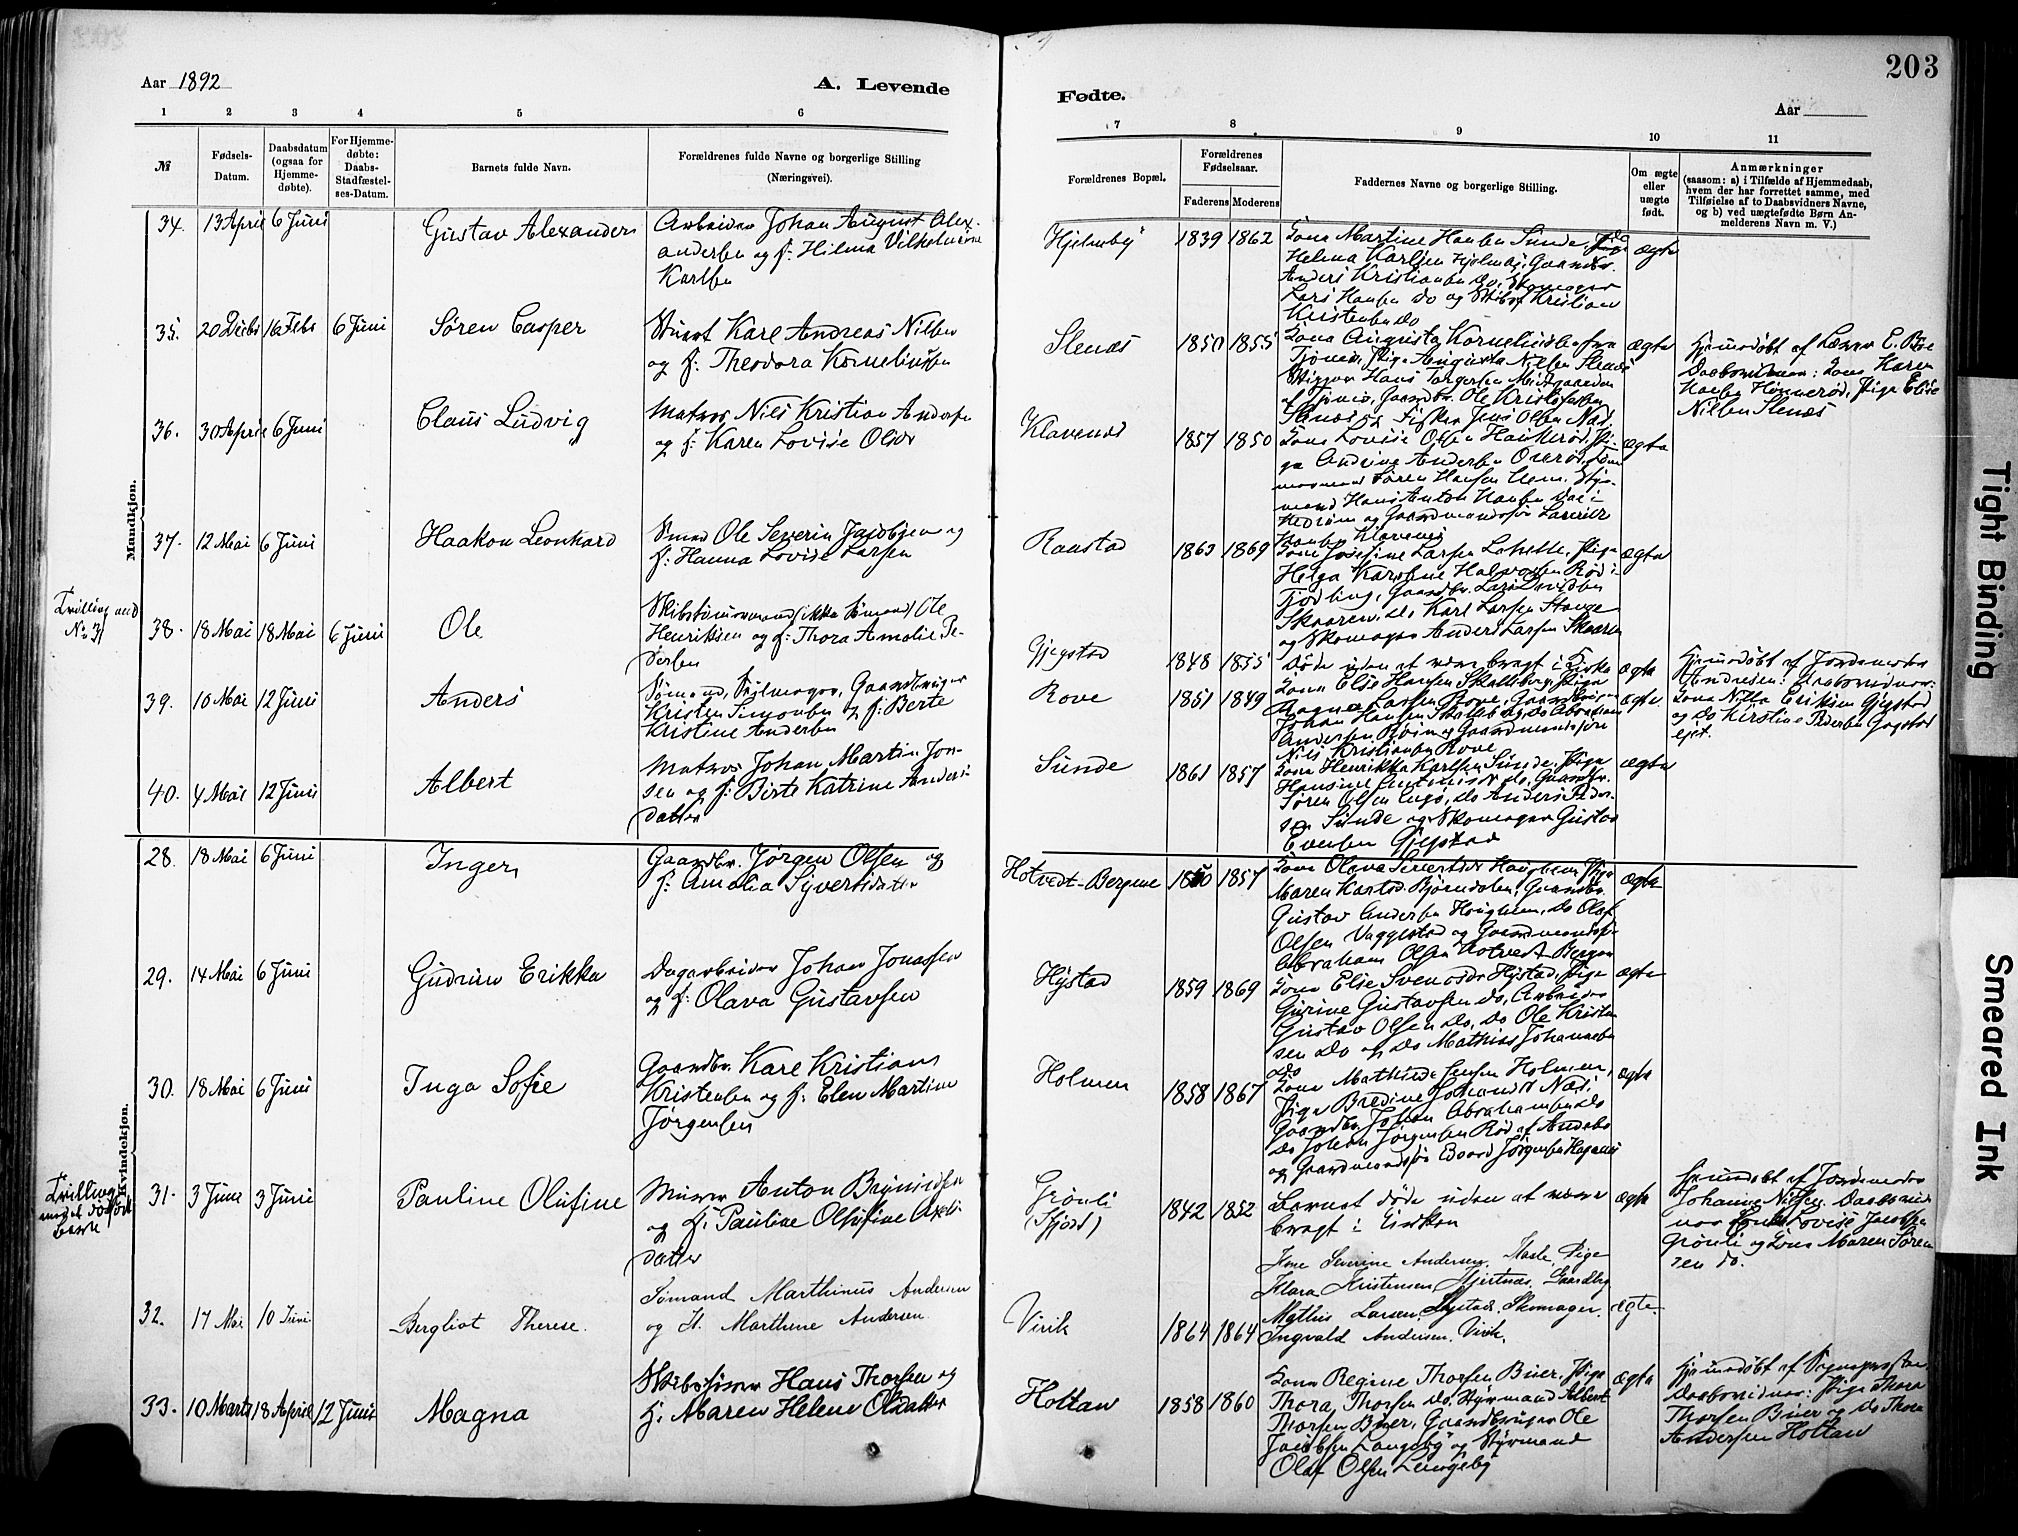 203
Aar 1892
A. Levende
Fødte.
Aar
1 2 3 4 5 6 7 8 9 10 11
№
Fødsels-
Datum.
Daabsdatum
(ogsaa for
Hjemme-
døbte).
For Hjemme-
døbte:
Daabs-
Stadfæstel-
ses-Datum.
Barnets fulde Navn.
Forældrenes fulde Navne og borgerlige Stilling
(Næringsvei).
Forældrenes Bopæl.
Forældrenes
Fødselsaar.
Faderens Moderens
Faddernes Navne og borgerlige Stilling.
Om ægte
eller
uægte
født.
Anmærkninger
(saasom: a) i Tilfælde af Hjemmedaab,
hvem der har forrettet samme, med
Tilføielse af to Daabsvidners Navne,
og b) ved uægtefødte Børn An-
melderens Navn m. V.)
Mandkjøn.
34. 13 April 6 Juni Gustav Alexander
Arbeider Johan August Alex-
andersen og H: Hilma Vilhelmine
Karlsen
Hjelmby 1839 1862
Kona Martine Hansen Sunde,
Helma Karlsen Hjelmby, Gaardbr.
Anders Kristiansen Do, Skomager
Lars Hansen Do og Kristian
Kristensen Do
ægte
35. 20 Decbr 16 Febr 6 Juni Søren Casper
Stuert Karl Andreas Nilsen
og H: Theodora Kornelinsen
Slenæs 1850 1855
Kona Augusta Kornelinsen fra
Tjømø, Pige Augusta Nilsen Slenæs
Skipper Hans Torgersen Midtgaarden
af Tjømø, Gaardbr. Ole Kristofersen
Slenæs og Fisker Jens Olsen Næs.
ægte
Hjemmedøbt af Lærer E. Bøe
Daabsvidner: Kona Karen
Hansen Hønnerød, Pige Elise
Nilsen Slenæs
36. 30 April 6 Juni Claus Ludvig
Matros Nils Kristian Andersen
og H: Karen Lovise Olsdr
Klavenæs 1857 1850
Kona Lovise Olsen Haukerød, Pi-
ge Andrine Andersen Ourød,
Søren Hansen Hem, Styr-
mand Hans Anton Hansen Dal i
Hedrum og Gaardmandssøn Laurits
Hansen Klavenæs
ægte
37. 12 Mai 6 Juni Haakon Leonhard
Smed Ole Severin Jacobsen og
H: Hanna Lovise Larsen
Raastad 1863 1869
Kona Josefine Larsen Lahelle, Pige
Helga Karoline Halvorsen Rød i
Fjodling, Gaardbr. Lars
Skaaren, Do Karl Larsen Stange
og Skomager Anders Larsen Skaaren
ægte
Tvilling med
No 31
38. 18 Mai 18 Mai 6 Juni Ole
Skibstømmermand (ikke Sømand) Ole
Henriksen og H: Thora Amalie Pe-
dersen
Gjegstad 1848 1855
Døde uden at være bragt i Kirke
ægte
Hjemmedøbt af Jordmoder
Andresen: Daabsvidner:
Kona Nilla Eriksen Gjegstad
og Do Kirstine Pedersen Gjegstad
ejet.
39. 10 Mai 12 Juni Anders
Sømand, Seilmager, Gaardbruger
Kristen Simonsen og H: Berte
Kristine Andersen
Rove 1851 1849
Kona Elise Hansen Skallberg, Pige
Ragna Larsen Rove, Gaardbruger
Johan Hansen Skallberg, Do Abraham
Andersen Rove og Gaardmandssøn
Nils Kristiansen Rove
ægte
40. 4 Mai 12 Juni Albert
Matros Johan Martin Jon-
sen og H: Berte Katrine Anders-
datter
Sunde 1861 1857
Kona Henrikka Karlsen Sunde, Pige
Hansine Antonisen Do, Gaardbr.
Søren Olsen Engø, Do Anders Peder-
sen Sunde og Skomager Gustav
Evensen Gjegstad
ægte
Kvindekjøn.
28. 18 Mai 6 Juni Inger
Gaardbr. Jørgen Olsen og
H: Amalia Syversdatter
Hotvedt-Bergene 1850 1857
Kona Olava Sivertsdr Haughem, Pige
Maren Karlsd. Bjørndalen, Gaardbr.
Gustav Andersen Haughem, Do Olaf
Olsen Vaggestad og Gaardmandssøn
Abraham Olsen Hotvedt Bergene
ægte
29. 14 Mai 6 Juni Gudrun Erikka
Dagarbeider Johan Jonassen
og H: Olava Gustavsen
Hystad 1859 1869
Kona Elise Svendsdr Hystad, Pige
Gurine Gustavsen Do, Arbeider
Gustav Olsen Do, Do Ole Kristen-
sen Do og Do Mathias Johannesen
Do
ægte
30. 18 Mai 6 Juni Inga Sofie
Gaardbr. Karl Kristian
Kristensen og H: Elen Martine
Jørgensen
Holmen 1858 1867
Kona Mathilde Jensen Holmen,
Pige Bredine Johansdr Næs,
Gaardbr. Johan Abrahamsen Do
Do Johan Jørgensen Rød af Andebu
og Gaardmandssøn Edvard Jørgensen Haganes
ægte
Tvilling
med et dødfødt
barn
31. 3 Juni 3 Juni Pauline Olufine
Murer Anton Brynildsen
og H: Pauline Olufine Axels-
datter
Grønli
(Fjord) 1842 1852
Barnet døde uden at være
bragt i Kirken
ægte
Hjemmedøbt af Jordmoder
Johanne Nilsen. Daabsvid-
ner Kona Lovise Jacobsen
Grønli og Kona Maren Søren-
sen do.
32. 17 Mai 10 Juni Bergliot Therese.
Sømand Marthinus Andersen
og H. Marthine Andersen.
Virik 1864 1864
Kone Severine Andersen, Hasle, Pige
Klara Kristensen Hjertnæs, Gaardbr.
Mathis Larsen, Hystad, Skomager
Ingvald Andersen, Virik,
ægte
33. 10 Marts 18 April 12 Juni Magna
Skibstømrer Hans Thorsen og
H: Maren Helene Olsdatter
Holtan 1858 1860
Kona Regine Thorsen Buer, Pige
Thora Thorsen Do, Styrmand Albert
Thorsen Buer, Gaardbruger Ole
Jacobsen Langeby og Styrmand
Olaf Olsen Langeby
ægte
Hjemmedøbt af Sognepresten
Daabsvidner: Pige Thora
Thorsen Buer og Do Thora
Andersen Holtan
Tight Binding
Smeared Ink